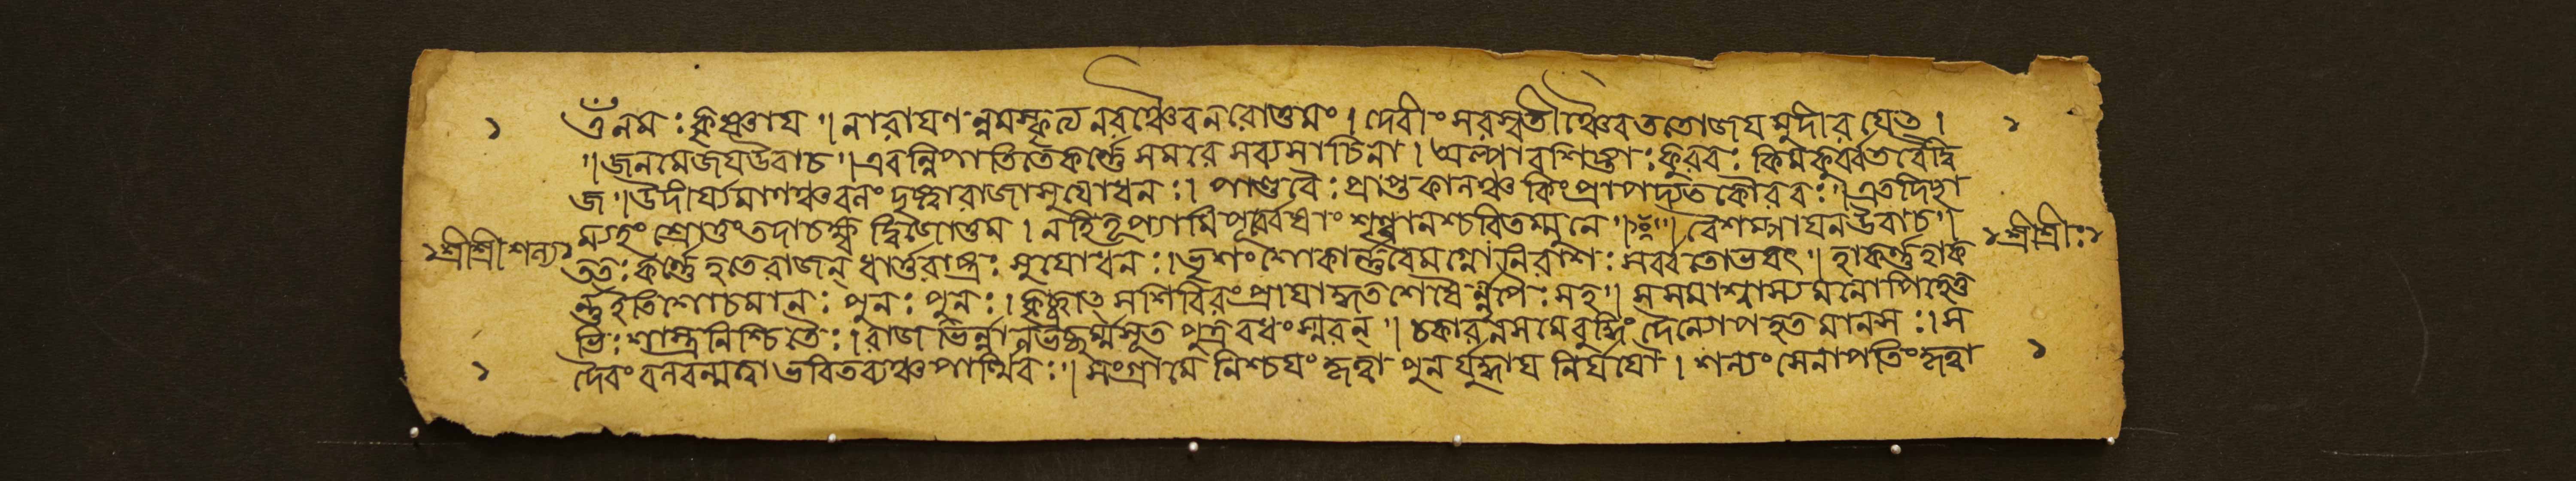 ১ ওঁ নমঃ কৃষ্ণায় ৷৷ নারায়ণন্নমস্কৃত্য নরঞ্চৈব নরোত্তমং । দেবীং সরস্বতীঞ্চৈব ততো জয়মুদীরয়েৎ । ১
৷৷ জনমেজয় উবাচ ৷৷ এবন্নিপাতিতে কর্ণ্ণে সমরে সব্যসাচিনা । অল্পাবশিষ্টাঃ কুরবঃ কিমকুর্ব্বত বৈ দ্বি
জ ৷৷ উদীর্য্যমাণঞ্চ বলং দৃষ্ট্বা রাজা সুযোধনঃ । পাণ্ডবৈঃ প্রাপ্তকালঞ্চ কিং প্রাপদ্যত কৌরবঃ ৷৷ এতদিছা
ম্যহং শ্রোতুং তদাচক্ষ্ব দ্বিজোত্তম । নহি তৃপ্যামি পূর্ব্বেষাং শৃণ্বানশ্চরিতম্মুনে ৷৷ বৈশম্পায়ন উবাচ ৷৷
শ্রীশ্রীশল্য ততঃ কর্ণ্ণে হতে রাজন্ ধার্ত্তরাষ্ট্রঃ সুযোধনঃ । ভৃশং শোকার্ন্নবে মগ্নো নিরাশঃ সর্ব্বতোভবৎ ৷৷ হা কর্ণ্ণ হা ক শ্রীশ্রীঃ
র্ণ্ণ ইতি শোচমানঃ পুনঃ পুনঃ । কৃচ্ছ্রাৎ স শিবিরং প্রায়াদ্ধতশেষৈর্ন্নৃপৈঃ সহ ৷৷ স সমাশ্বাস্যমানোপি হেতু
ভিঃ শাস্ত্রনিশ্চিতৈঃ । রাজভির্ন্নালভচ্ছর্ম্ম সূতপুত্রবধং স্মরন্ ৷৷ চকার ন সমে বুদ্ধিং দৈন্যোপহতমানসঃ । স
১ দৈবং বলবন্মত্বা ভবিতব্যঞ্চ পার্থিবঃ ৷৷ সংগ্রামে নিশ্চয়ং কৃত্বা পুনর্যুদ্ধায় নির্যযৌ । শল্যং সেনাপতিং কৃত্বা ১